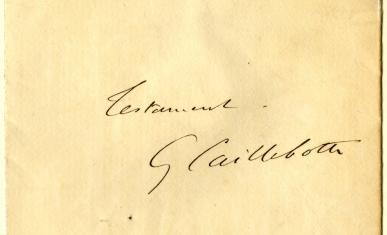 Testament.
G Caillebotte